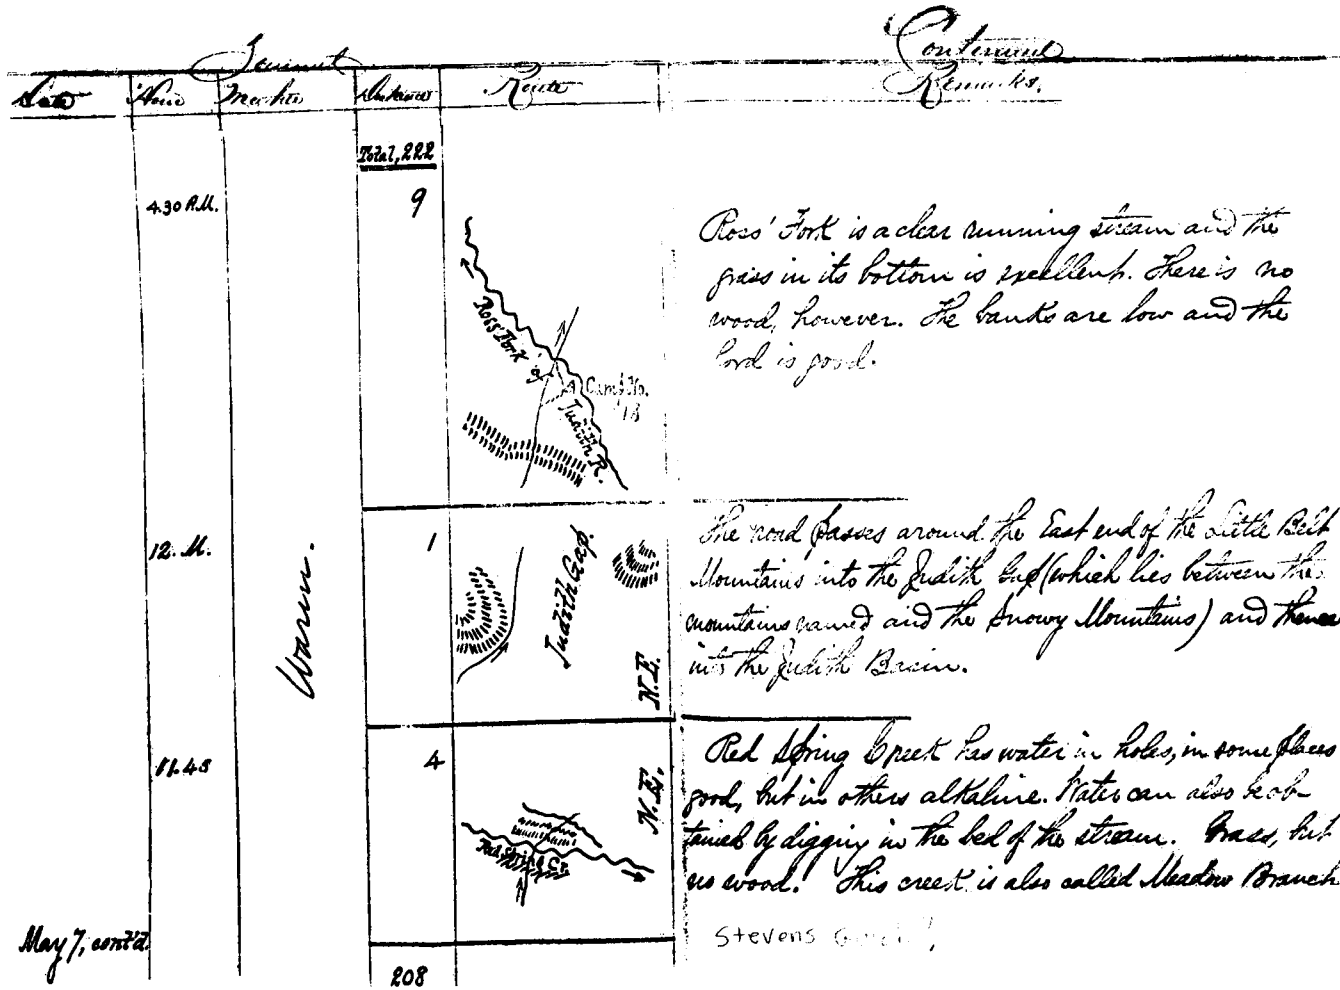 Journal Continued
Date Hour Weather Distance Route Remarks.
Total, 222
4.30 P.M. 9
Ross' Fork is a clear running stream and the
grass in its bottom is excellent. There is no
wood, however. The banks are low and the
ford is good.
Ross' Fork
Camp No.
18
Judith R.
12. M. 1
Judith Gap.
N.E.
The road passes around the East end of the Little Belt
Mountains into the Judith Gap (which lies between the
mountains named and the Snowy Mountains) and thence
into the Judith Basin.
Warm.
11.45 4
N.E.
Red Spring Cr.
Red Spring Creek has water in holes, in some places
good, but in others alkaline. Water can also be ob-
tained by digging in the bed of the stream. Grass, but
no wood. This creek is also called Meadow Branch
Stevens
May 7, cont'd.
208